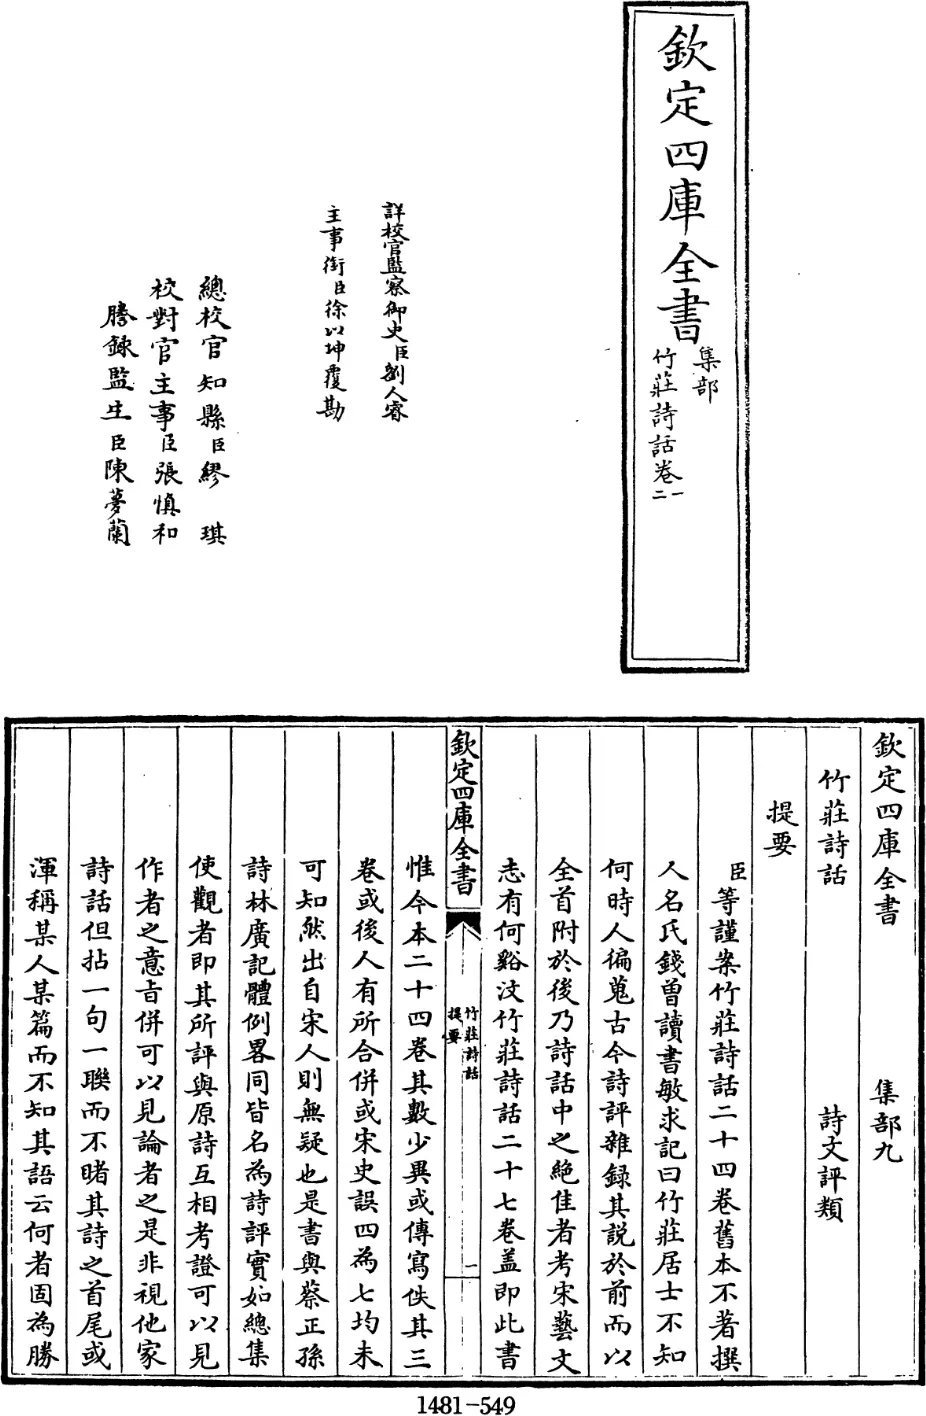 欽定四庫全書
集部
竹莊詩話卷一
二
詳校官監察御史臣劉人睿
主事銜臣徐以坤覆勘
總校官知縣臣繆琪
校對官主事臣張慎和
謄錄監生臣陳夢蘭
欽定四庫全書 集部九
竹莊詩話 詩文評類
提要
臣等謹案竹莊詩話二十四卷舊本不著撰
人名氏錢曽讀書敏求記曰竹莊居士不知
何時人徧蒐古今詩評雜録其説於前而以
全首附於後乃詩話中之絶佳者考宋藝文
志有何谿汶竹莊詩話二十七卷盖即此書
欽定四庫全書
竹莊詩話
提要
一
惟今本二十四卷其數少異或傳寫佚其三
卷或後人有所合併或宋史誤四為七均未
可知然出自宋人則無疑也是書與蔡正孫
詩林廣記體例畧同皆名為詩評實如總集
使觀者即其所評與原詩互相考證可以見
作者之意旨併可以見論者之是非視他家
詩話但拈一句一聯而不睹其詩之首尾或
渾稱某人某篇而不知其語云何者固為勝
1481-549